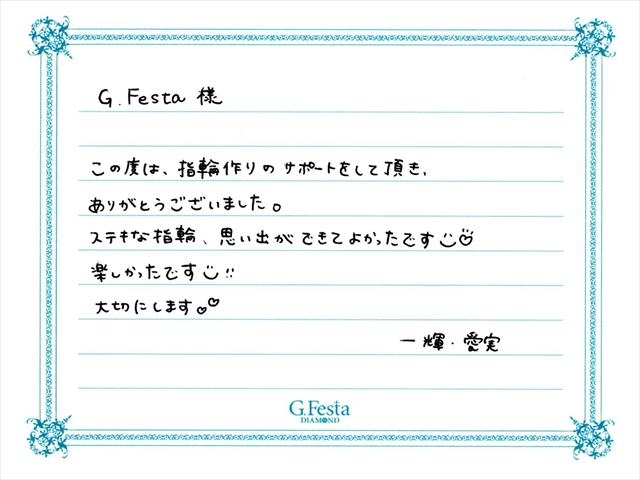 G.Festa 様
この度は、指輪作りのサポートをして頂き、
ありがとうございました。
ステキな指輪、思い出ができてよかったです
楽しかったです!!
大切にします。
一輝・愛実
G.Festa
DIAMOND